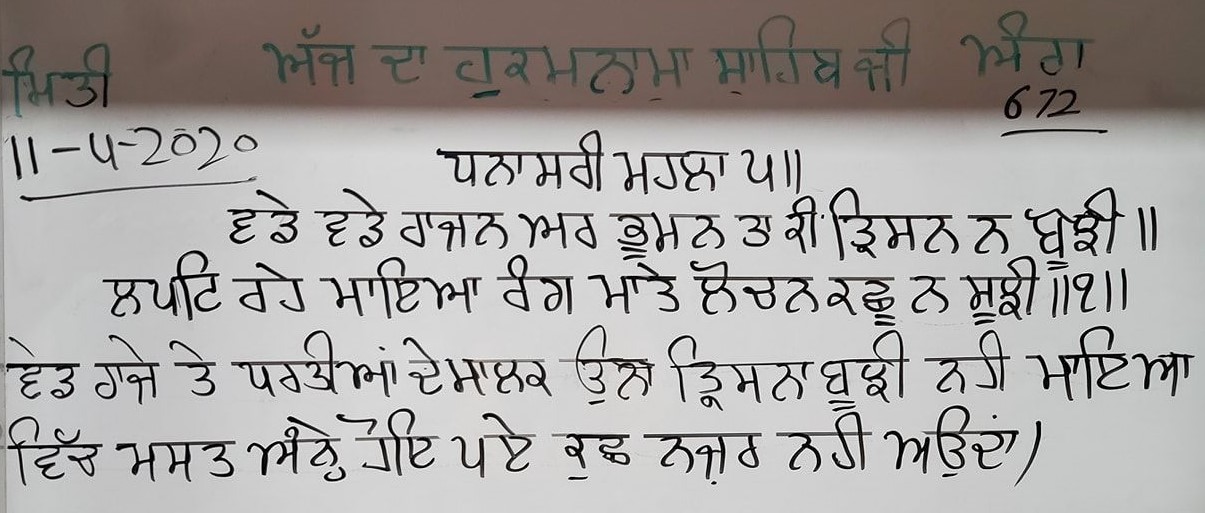 ਮਿਤੀ ਅੱਜ ਦਾ ਹੁਕਮਨਾਮਾ ਸਾਹਿਬ ਜੀ ਅੰਗ
672
11-4-2020
ਧਨਾਸਰੀ ਮਹਲਾ ੫॥
ਵਡੇ ਵਡੇ ਰਾਜਨ ਅਰ ਭੂਮਨ ਤਾ ਕੀ ਤ੍ਰਿਸਨ ਨ ਬੂਝੀ ॥
ਲਪਟਿ ਰਹੇ ਮਾਇਆ ਰੰਗ ਮਾਤੇ ਲੋਚਨ ਕਛੂ ਨ ਸੂਝੀ ॥੧॥
ਵਡੇ ਰਾਜੇ ਤੇ ਧਰਤੀਆਂ ਦੇ ਮਾਲਕ ਉਨਾ ਤ੍ਰਿਸਨਾ ਬੂਝੀ ਨਹੀ ਮਾਇਆ
ਵਿੱਚ ਮਸਤ ਅੰਨੇ ਹੋਇ ਪਏ ਕੁਛ ਨਜ਼ਰ ਨਹੀ ਅਉਂਦਾ)